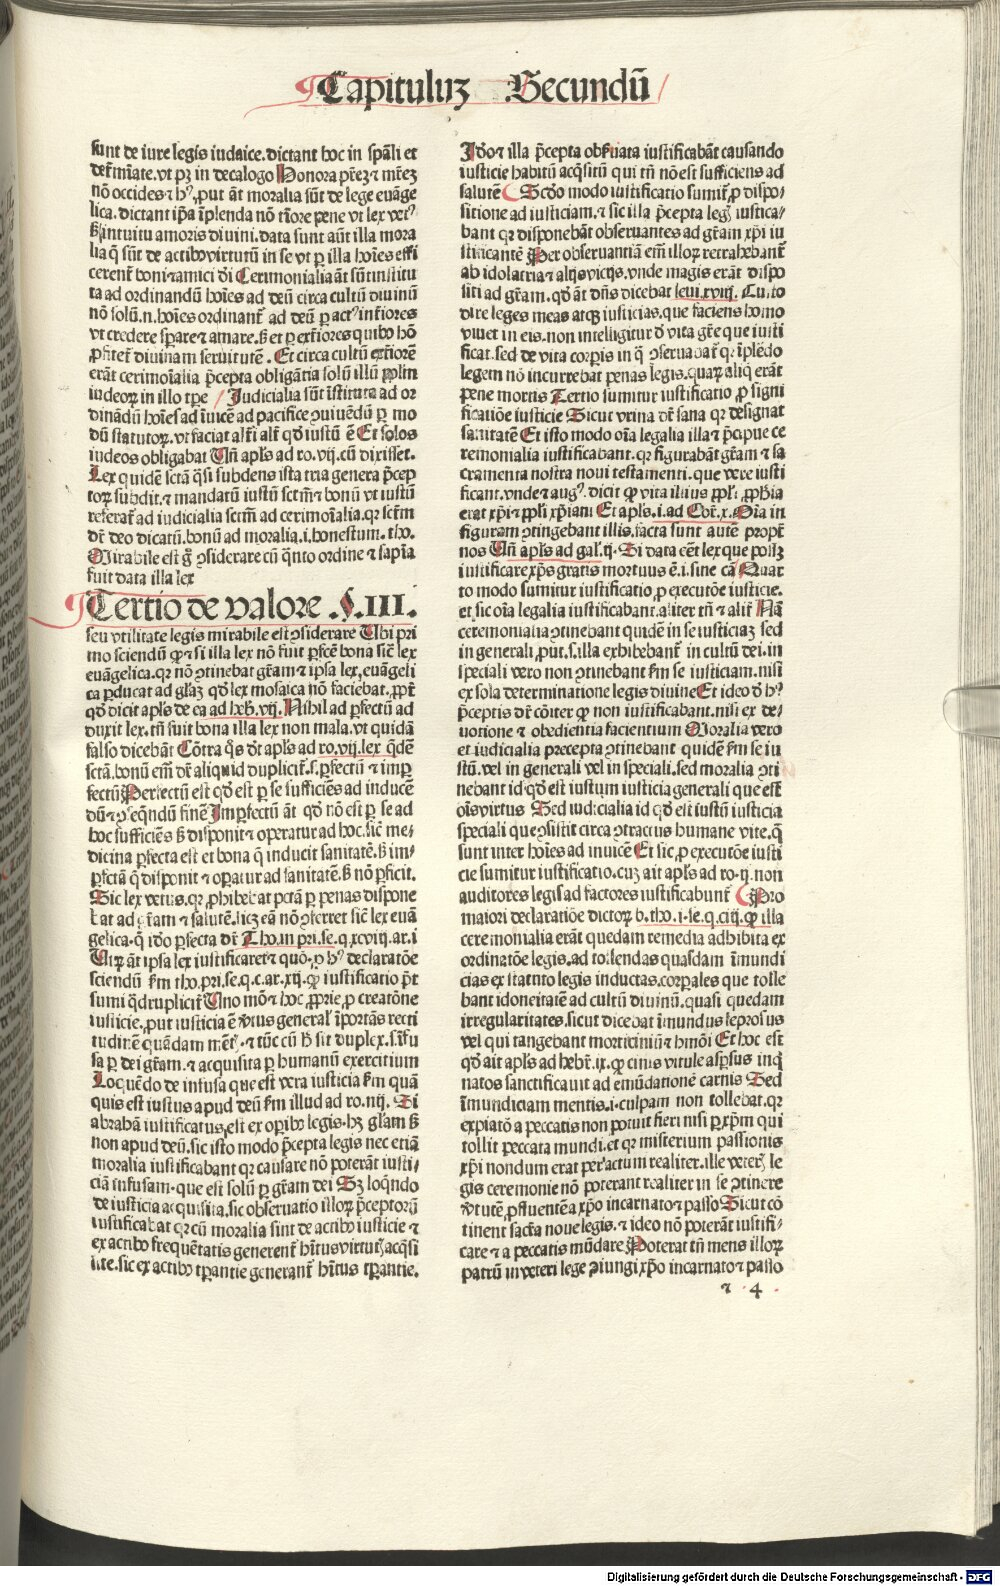 Capituluꝫ Secundū
sunt de iure legis iudaice. dictant hoc in spāli et
det̄mīate. vt pꝫ in decalogo Honora prēꝫ ⁊ mrēꝫ
nō occides ⁊ hꝰ. put āt moralia sūt de lege euāge
lica. dictant ip̄a īplenda nō tīore pene vt lex vetꝰ
sꝫ intuitu amoris diuini. data sunt aūt illa mora
lia q̄ sūt de actibꝰ virtutū in se vt ꝑ illa hoīes effi
cerent̄ boni ⁊ amici dei Cerimonialia āt sūt institu
ta ad ordinandū hoīes ad deū circa cultū diuinū
nō solū .n. hoīes ordinant̄ ad deū ꝑ actꝰ int̄iores
vt credere sperare ⁊ amare. sꝫ et ꝑ ext̄iores quibꝰ hō
ꝓfitet̄ diuinam seruitutē. Et circa cultū ext̄iorē
erāt cerimoīalia p̄cepta obligātia solū illū ppl̄m
iudeoꝝ in illo tpe / Judicialia sūt īstituta ad or
dinādū hoīes ad īuicē ad pacifice ↄuiuēdū ꝑ mo
dū statutoꝝ. vt faciat alt̄i alt̄ qd̄ iustū ē Et solos
iudeos obligabat Uñ apl̄s ad ro. vij. cū dixisset.
Lex quidē sctā q̄si subdens ista tria genera p̄cep
toꝝ subdit. ⁊ mandatū iustū sctm̄ ⁊ bonū vt iustū
referat̄ ad iudicialia sctm̄ ad cerimoīalia. qꝛ sctm̄
dr̄ deo dicatū. bonū ad moralia .i. honestum. tho.
Mirabile est g̊ ↄsiderare cū q̄nto ordine ⁊ sapīa
fuit data illa lex
Tertio de valore .§. III.
seu vtilitate legis mirabile est ↄsiderare Ubi pri
mo sciendū ꝙ ⁊ si illa lex nō fuit ꝑfcē bona sic̄ lex
euāgelica. qꝛ nō ↄtinebat gr̄am ⁊ ipsa lex, euāgeli
ca ꝑducat ad gl̄aꝫ qd̄ lex mosaica nō faciebat. ꝓpt̄
qd̄ dicit apl̄s de ea ad heb̄. vij. Nihil ad ꝑfectū ad
duxit lex. tn̄ fuit bona illa lex non mala. vt quidā
falso dicebāt Cōtra q̄s dr̄ apl̄s ad ro. vij. lex q̄dē
sctā. bonū em̄ dr̄ aliquid duplicit̄. s. ꝑfectū ⁊ imꝑ
fectū Perfectū est qd̄ est ꝑ se sufficiēs ad inducē
dū ⁊ ↄseq̄ndū finē Imꝑfectū āt qd̄ nō est ꝑ se ad
hoc sufficiēs sꝫ disponit ⁊ operatur ad hoc. sic̄ me⸗
dicina ꝑfecta est et bona q̄ inducit sanitatē. sꝫ im⸗
ꝑfctā q̄ disponit ⁊ oꝑatur ad sanitatē. sꝫ nō ꝑficit.
Sic lex vetus. qꝛ ꝓhibebat pctā ꝑ penas dispone
bat ad gr̄am ⁊ salutē. licꝫ eā nō ↄferret sic̄ lex euā
gelica. q̄ idō ꝑfecta dr̄ Tho. in pri. se. q. xcviij. ar. i
Utꝝ āt ipsa lex iustificaret ⁊ quō. ꝓ hꝰ declaratōe
sciendū fm̄ tho. pri. se. q. c. ar. xij. ꝙ iustificatio pōt
sumi q̄druplicit̄ Uno mō ⁊ hoc ꝓprie, ꝓ creatōne
iusticie. put iusticia ē v̄tus general̄ īportās recti
tudinē quādam mēt̄. ⁊ tūc cū h̄ sit duplex. s. īfu
sa ꝑ dei gr̄am. ⁊ acquisita ꝑ humanū exercitium
Loquēdo de infusa que est vera iusticia fm̄ quā
quis est iustus apud deū fm̄ illud ad ro. iiij. Si
abrabā iustificatus est ex opibꝰ legis. hꝫ gl̄am sꝫ
non apud deū. sic isto modo p̄cepta legis nec etiā
moralia iustificabant qꝛ causare nō poterāt iusti⸗
ciā infusam. que est solū ꝑ gr̄am dei Sꝫ loq̄ndo
de iusticia acquisita. sic obseruatio illoꝝ p̄ceptoꝝ
iustificabat qꝛ cū moralia sint de actibꝰ iusticie ⁊
ex actibꝰ frequētatis generent̄ hītus virtutꝫ acq̄si
tite. sic ex actibꝰ tꝑantie generant̄ hītus tꝑantie.
Idō ⁊ illa p̄cepta obẜuata iustificabāt causando
iusticie habitū acq̄sitū qui tn̄ nō est sufficiens ad
salutē Scd̄o modo iustificatio sumit̄, ꝓ dispo⸗
sitione ad iusticiam. ⁊ sic illa p̄cepta legꝫ iustica⸗
bant qꝛ disponebāt obseruantes ad gr̄am xp̄i iu
stificantē Per obseruantiā em̄ illoꝝ retrahebant̄
ab idolatria ⁊ alijs vicijs. vnde magis erāt dispo
siti ad gr̄am. qd̄ āt dn̄s dicebat leui. xviij. Custo
dite leges meas atqꝫ iusticias. que faciens homo
viuet in eis. non intelligitur d̄ vita gr̄e que iusti
ficat. sed de vita corꝑis in q̄ ↄseruabat̄ qꝛ īplēdo
legem nō incurrebat penas legis. quaꝝ aliq̄ erāt
pene mortis Tertio sumitur iustificatio, ꝓ signi
ficatiōe iusticie Sicut vrina dr̄ sana qꝛ designat
sanitatē Et isto modo oīa legalia illa ⁊ p̄cipue ce
remonialia iustificabant. qꝛ figurabāt gr̄am ⁊ sa
cramenta nostra noui testamenti. que vere iusti
ficant. vnde ⁊ augꝰ. dicit ꝙ vita illius ppl̄i, ꝓphīa
erat xp̄i ⁊ ppl̄i xp̄iani Et apl̄s. i. ad Cor̄. x. Oīa in
figuram ↄtingebant illis. facta sunt autē propt̄
nos Uñ apl̄s ad gal̄. ij. Si data eēt lex que possꝫ
iustificare xp̄s gratis mortuus ē. i. sine cā Quar
to modo sumitur iustificatio, ꝓ executōe iusticie.
et sic oīa legalia iustificabant. aliter tn̄ ⁊ alit̄ Nā
ceremonialia ↄtinebant quidē in se iusticiaꝫ sed
in generali, put. s. illa exhibebant̄ in cultū dei. in
speciali vero non ↄtinebant fm̄ se iusticiam. nisi
ex sola determinatione legis diuine Et ideo d̄ hꝰ
p̄ceptis dr̄ cōiter ꝙ non iustificabant. nisi ex de⸗
uotione ⁊ obedientia facientium Moralia vero
et iudicialia precepta ↄtinebant quidē fm̄ se iu
stū. vel in generali vel in speciali. sed moralia ↄti
nebant id qd̄ est iustum iusticia generali que est
oīs virtus Sed iudicialia id qd̄ est iustū iusticia
speciali que ↄsistit circa ↄtractus humane vite. q̄
sunt inter hoīes ad inuicē Et sic, ꝓ executōe iusti
cie sumitur iustificatio. cuꝫ ait apl̄s ad ro. ij. non
auditores legis ad factores iustificabunt̄ Pro
maiori declaratiōe dictoꝝ b. tho. i. se. q. ciij. ꝙ illa
ceremonialia erāt quedam remedia adhibita ex
ordinatōe legis. ad tollendas quasdam īmundi
cias ex statuto legis inductas. corꝑales que tolle
bant idoneitatē ad cultū diuinū. quasi quedam
irregularitates. sicut dicebat īmundus leprosus
vel qui tangebant morticiniū ⁊ hmōi Et hoc est
qd̄ ait apl̄s ad hebr̄. ix. ꝙ cinis vitule asꝑsus inq̄
natos sanctificauit ad emūdationē carnis Sed
īmundiciam mentis. i. culpam non tollebat. qꝛ
expiatō a peccatis non potuit fieri nisi ꝑ xp̄m qui
tollit peccata mundi. et qꝛ misterium passionis
xp̄i nondum erat peractum realiter. ille veterꝫ le
gis ceremonie nō poterant realiter in se ↄtinere
v̄tutē, ꝓfluentē a xp̄o incarnato ⁊ passo Sicut cō
tinent sacr̄a noue legis. ⁊ ideo nō poterāt iustifi⸗
care ⁊ a peccatis mūdare Poterat tn̄ mens illoꝝ
patrū in veteri lege ↄiungi xp̄o incarnato ⁊ passo
⁊ 4
Digitalisierung gefördert durch die Deutsche Forschungsgemeinschaft - DFG